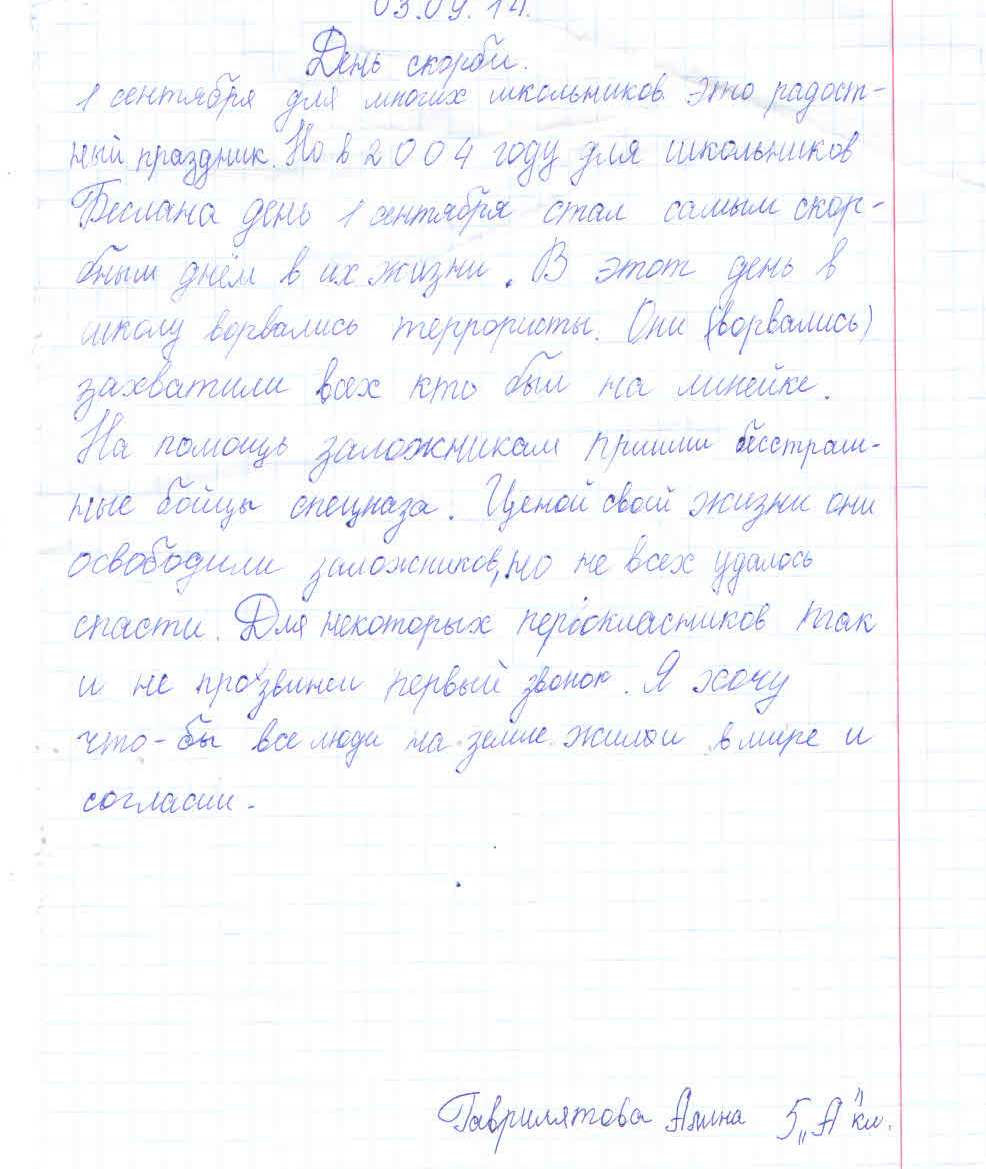 03.09.14.
День скорби.
1 сентября для многих школьников это радост-
ный праздник. Но в 2004 году для школьников
Беслана день 1 сентября стал самым скор-
бным днём в их жизни. В этот день в
школу ворвались террористы. Они (ворвались)
захватили всех кто был на линейке.
На помощь заложникам пришли бесстраш-
ные бойцы спецназа. Ценой свой жизни они
освободили заложников, но не всех удалось
спасти. Для некоторых первокласников так
и не прозвинел первый звонок. Я хочу
что-бы все люди на земле жили в мире и
согласии.
Гаврилятова Алина 5 „А" кл.